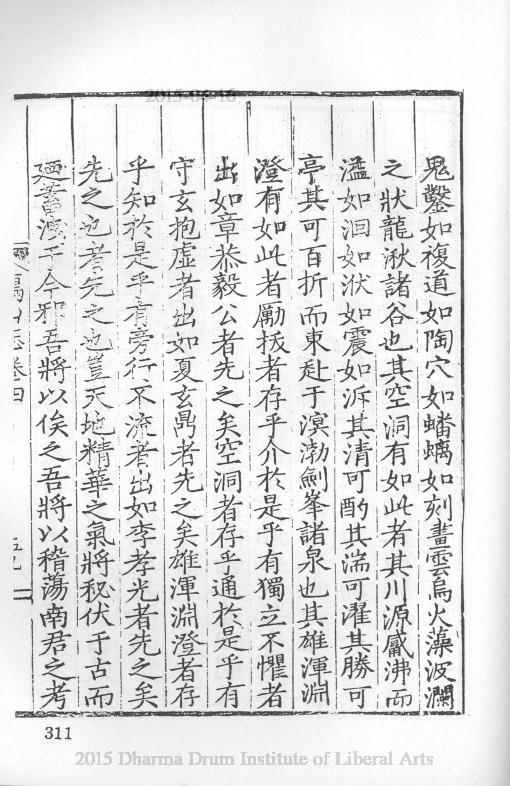 2015-04-16
鬼鑿如複道如陶穴如蟠螭如刻畫雲鳥火藻波瀾
之狀龍湫諸谷也其空洞有如此者其川源觱沸而
溢如洄如洑如震如泝其清可酌其湍可濯其勝可
亭其可百折而東赴于溟渤劍峯諸泉也其雄渾淵
澄有如此者勵拔者存乎介於是乎有獨立不懼者
出如章恭毅公者先之矣空洞者存乎通於是乎有
守玄抱虛者出如夏玄鼎者先之矣雄渾淵澄者存
乎知於是乎有旁行不流者出如李孝光者先之矣
先之也者先之也豈天地精華之氣將秘伏于古而
廼蓄洩于今邪吾將以俟之吾將以稽蕩南君之考
山志卷四
311
2015 Dharma Drum Institute of Liberal Arts